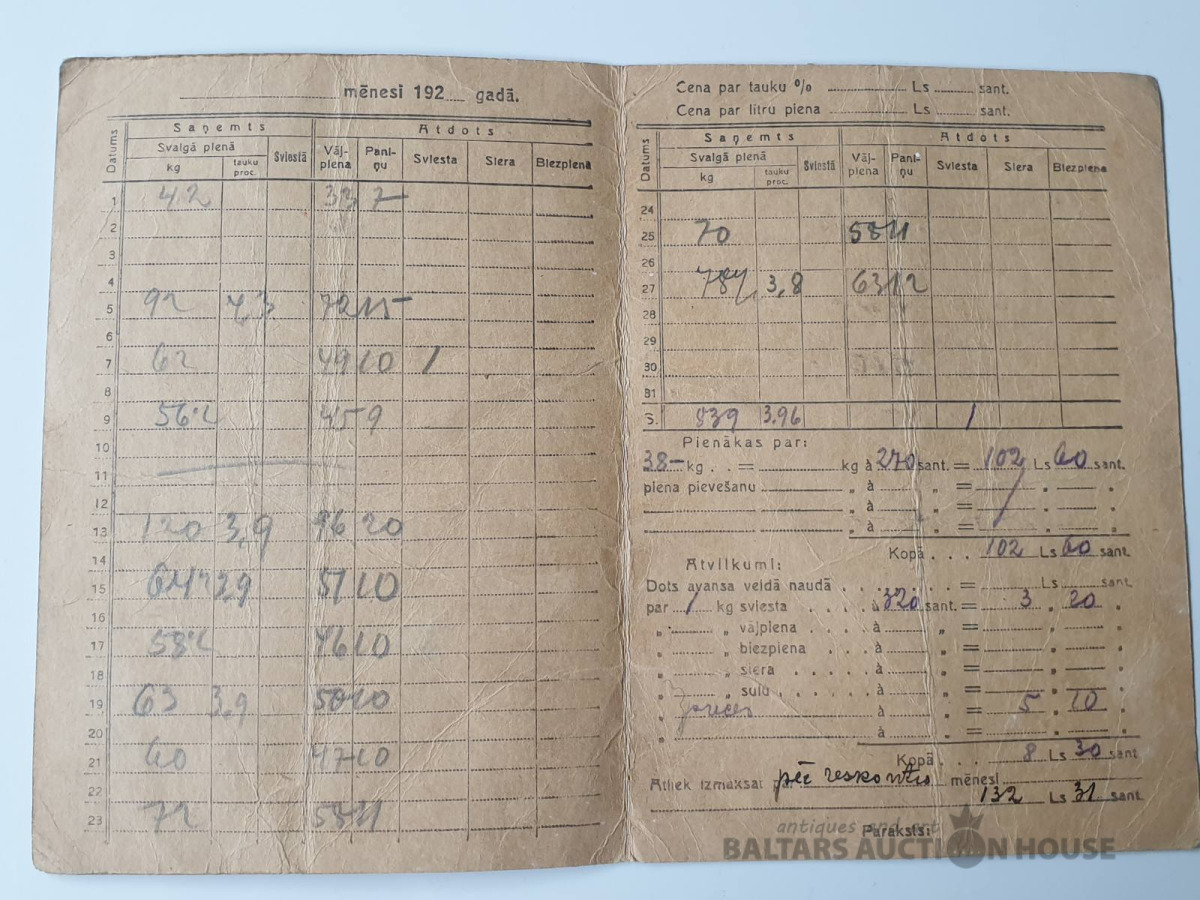 mēnesi 192 gadā.
Saņemts Atdots
Datums Svaigā pienā Sviestā Vājpiena Paniņu Sviesta Siera Biezpiena
kg tauku proc.
1 42 33 7
2
3
4
5 92 4,3 72 15
6
7 62 49 10 1
8
9 56 45 9
10
11
12
13 120 3,9 96 20
14
15 64 51 10
16
17 58 46 10
18
19 63 3,9 50 10
20
21 60 47 10
22
23 72 58 11
Cena par tauku % Ls sant.
Cena par litru piena Ls sant.
Saņemts Atdots
Datums Svaigā pienā Sviestā Vājpiena Paniņu Sviesta Siera Biezpiena
kg tauku proc.
24
25 70 58 11
26
27 78 3,8 63 12
28
29
30
31
S. 839 3,96 1
Pienākas par:
38- kg . . = kg à 270 sant. = 102 Ls 60 sant.
piena pievešanu „ à „ =
„ à „ =
„ à „ =
Kopā . . . 102 Ls 60 sant.
Atvilkumi:
Dots avansa veidā naudā . . . = Ls sant.
par 1 kg sviesta à 320 sant. = 3 „ 20 „
„ „ vājpiena . . . . à „ =
„ „ biezpiena . . . à „ =
„ „ siera . . . . à „ =
„ „ sulu . . . . à „ =
„ à „ = 5 „ 10 „
„ à „ =
Kopā . . . 8 Ls 30 sant
Atliek izmaksāt pēc reskontro mēnesi
132 Ls 31 sant.
Paraksts:
antiques and art
BALTARS AUCTION HOUSE